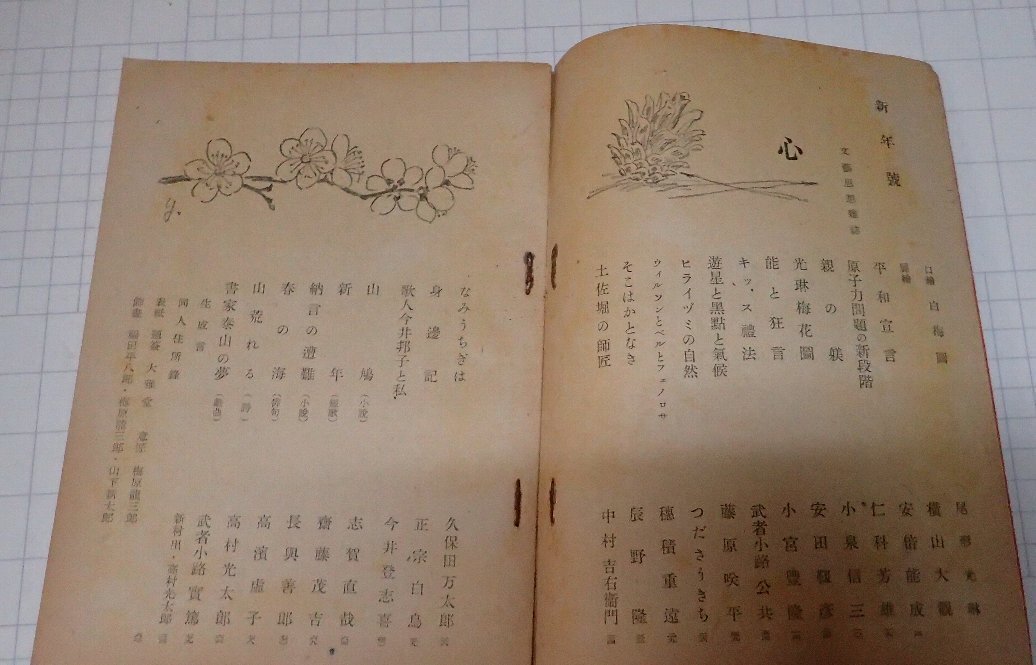 新年號
心
文藝思想雜誌
口繪 白梅圖 尾形光琳
橫山大觀
平和宣言 安倍能成
原子力問題の新段階 仁科芳雄
親の躾 小泉信三
光琳梅花圖 安田靫彦
能と狂言 小宮豊隆
キッス禮法 武者小路公共
遊星と黑點と氣候 藤原咲平
ヒライヅミの自然 つださうきち
ウィルソンとベルとフェノロサ 穗積重遠
そこはかとなき 辰野隆
土佐堀の師匠 中村吉右衞門
なみうちぎは 久保田万太郎
身邊記 正宗白鳥
歌人今井邦子と私 今井登志喜
山鳩(小說) 志賀直哉
新年(短歌) 齋藤茂吉
納言の遭難(小說) 長與善郎
春の海(俳句) 高濱虛子
山荒れる(詩) 高村光太郎
書家泰山の夢(戲曲) 武者小路實篤
生成會 新村出・高村光太郎
同人住所錄
表紙 題簽 大雅堂 意匠 梅原龍三郎
・梅原龍三郎・山下新太郎
y.